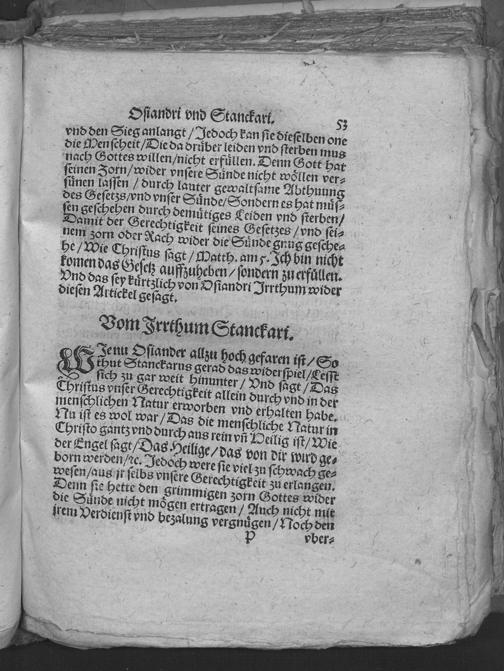 Osiandri vnd Stanckari.
53
vnd den Sieg anlangt / Jedoch kan sie dieselben one
die Menscheit / Die da drüber leiden vnd sterben mus
nach Gottes willen / nicht erfüllen. Denn Gott hat
seinen Zorn / wider vnsere Sünde nicht wöllen ver-
sünen lassen / durch lauter gewaltsame Abthuung
des Gesetzs / vnd vnser Sünde / Sondern es hat müs-
sen geschehen durch demütiges Leiden vnd sterben /
Damit der Gerechtigkeit seines Gesetzes / vnd sei-
nem zorn oder Rach wider die Sünde gnug gesche-
he / Wie Christus sagt / Matth. am 5. Ich bin nicht
komen das Gesetz auffzuheben / sondern zu erfüllen.
Vnd das sey kürtzlich von Osiandri Irrthum wider
diesen Artickel gesagt.
Vom Irrthum Stanckari.
WIe nu Osiander allzu hoch gefaren ist / So
thut Stanckarus gerad das widerspiel / Lesst
sich zu gar weit hinunter / Vnd sagt / Das
Christus vnser Gerechtigkeit allein durch vnd in der
menschlichen Natur erworben vnd erhalten habe.
Nu ist es wol war / Das die menschliche Natur in
Christo gantz vnd durch aus rein vñ Heilig ist / Wie
der Engel sagt / Das Heilige / das von dir wird ge-
born werden / ꝛc. Jedoch were sie viel zu schwach ge-
wesen / aus jr selbs vnsere Gerechtigkeit zu erlangen.
Denn sie hette den grimmigen zorn Gottes wider
die Sünde nicht mögen ertragen / Auch nicht mit
jrem Verdienst vnd bezalung vergnügen / Noch den
P vber-